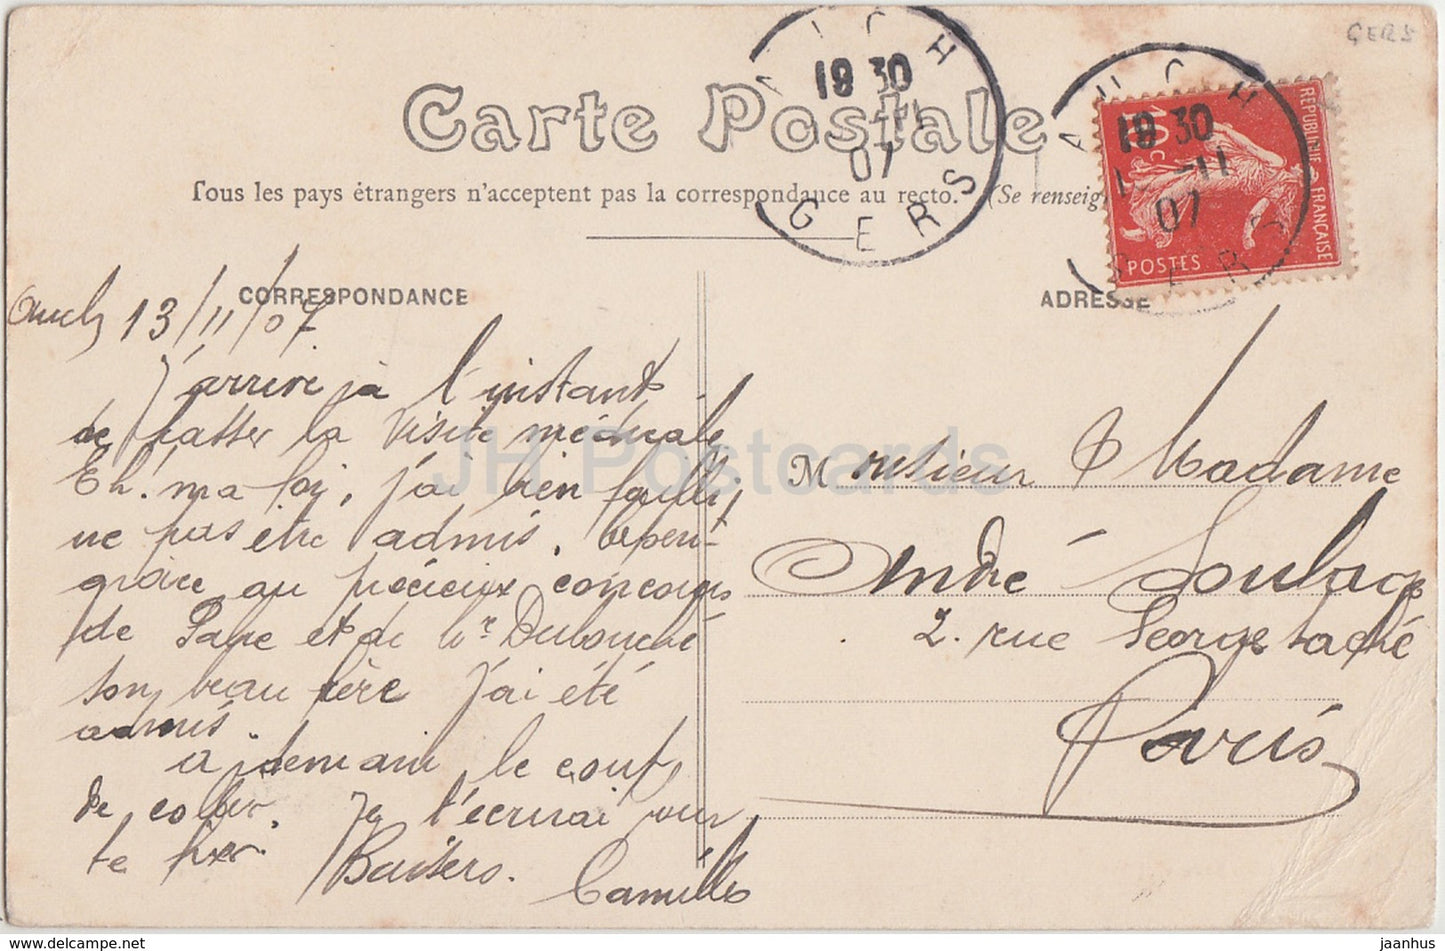 GERS
Carte Postale
AUCH
19 30
-11
07
GERS
AUCH
19 30
1 -11
07
GERS
10c
REPUBLIQUE FRANÇAISE
POSTES
Tous les pays étrangers n'acceptent pas la correspondance au recto. (Se renseig
CORRESPONDANCE
ADRESSE
Auch 13/11/07
J'arrive à l'instant
de passer la visite médicale
Eh! ma foi, j'ai bien failli
ne pas être admis.
grâce au précieux concours
de Pape et de Mr Dubouché
son beau père j'ai été
admis.
a demain le coup
de collier. Je t'écrirai pour
te fixer. Baisers.
Camille
Monsieur & Madame
André Soulacs
2. rue George taché
Paris
JH Postcards
www.delcampe.net
jaanhus